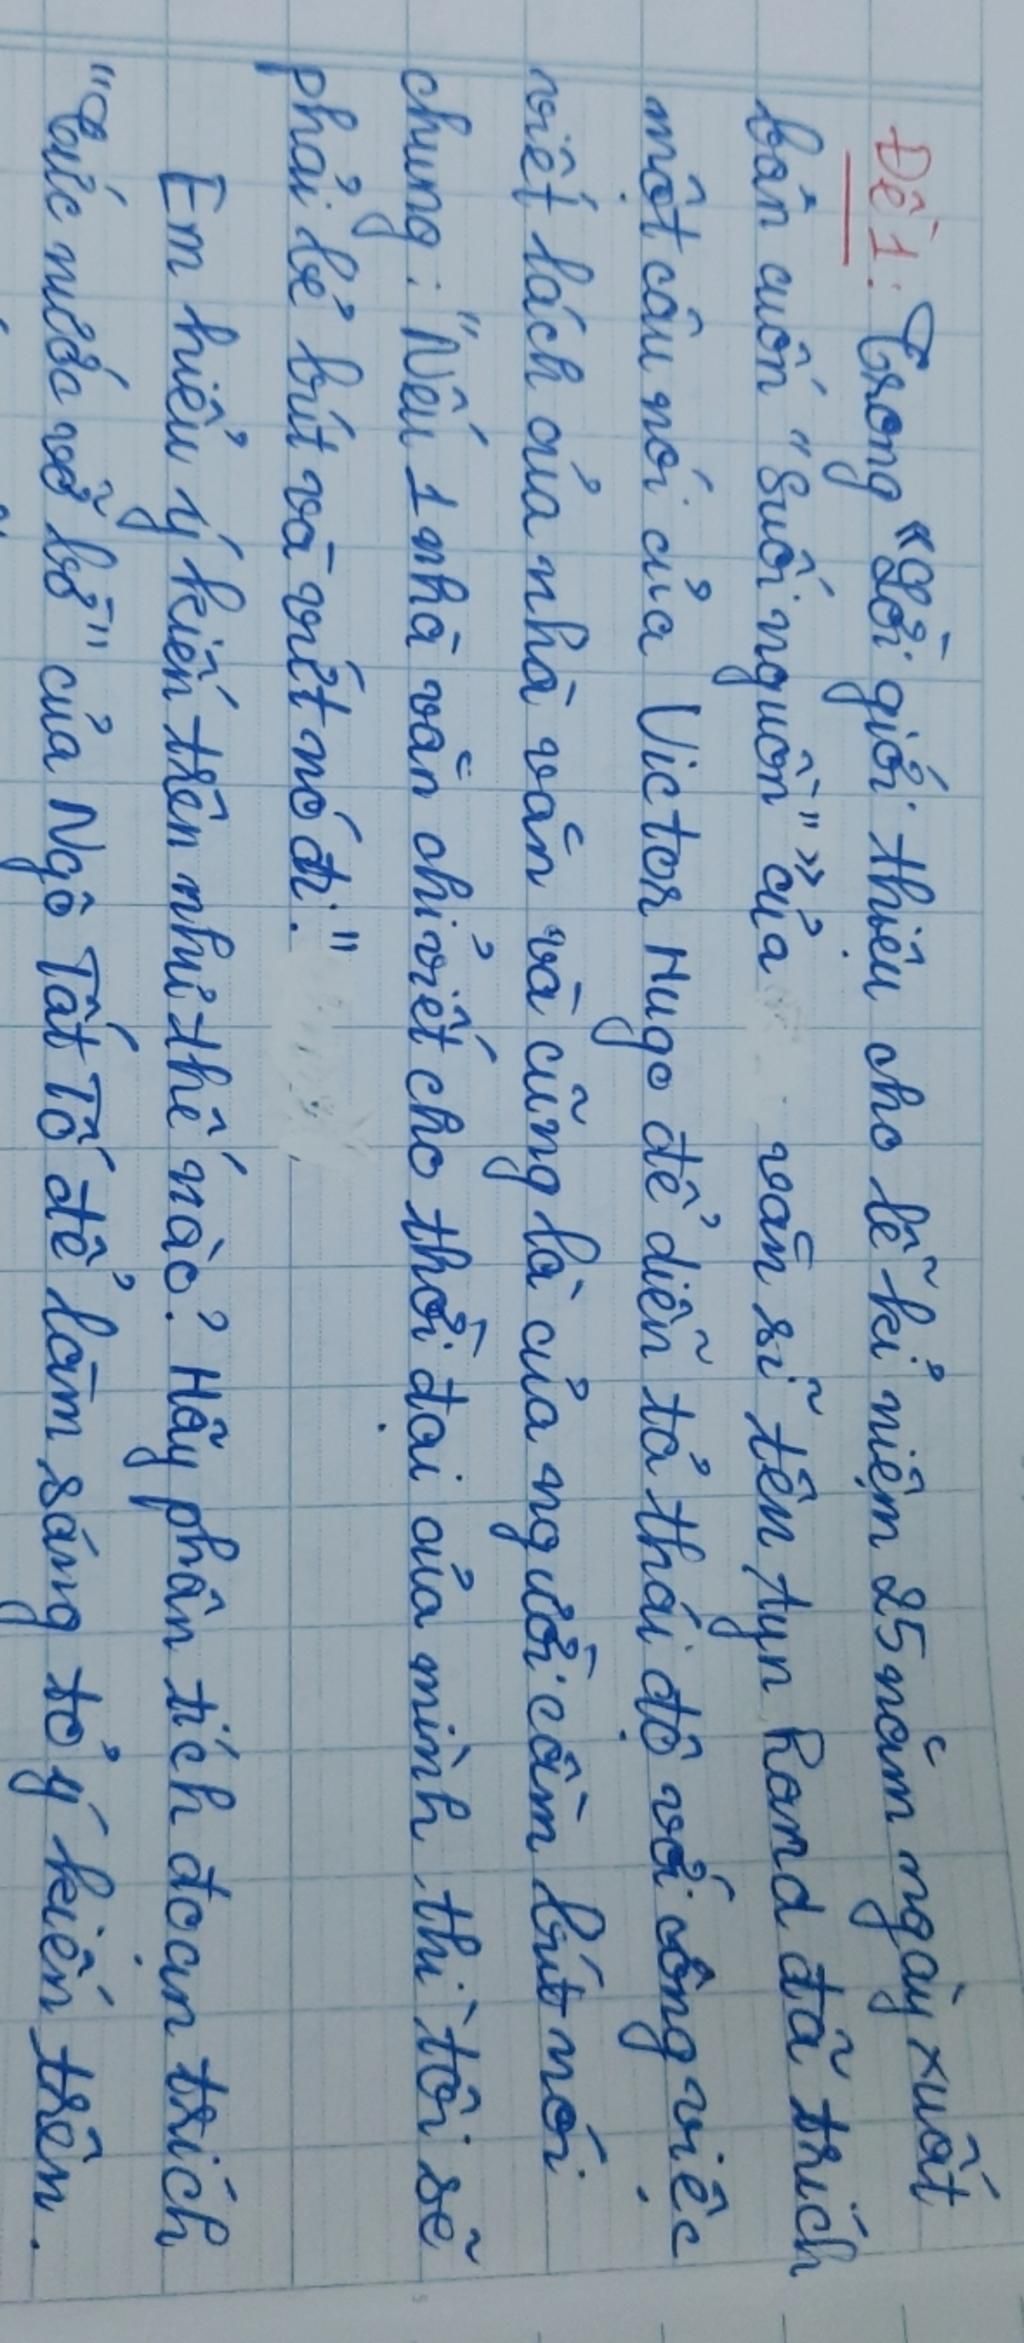 Đề 1: Trong "Lời giới thiệu cho lễ kỉ niệm 25 năm ngày xuất
bản cuốn "Suối nguồn"" của văn sĩ tên Ayn Rand đã trích
một câu nói của Victor Hugo để diễn tả thái độ với công việc
viết lách của nhà văn và cũng là của người cầm bút nói
chung: "Nếu 1 nhà văn chỉ viết cho thời đại của mình, thì tôi sẽ
phải bẻ bút và vứt nó đi."
Em hiểu ý kiến trên như thế nào? Hãy phân tích đoạn trích
"Tức nước vỡ bờ" của Ngô Tất Tố để làm sáng tỏ ý kiến trên.